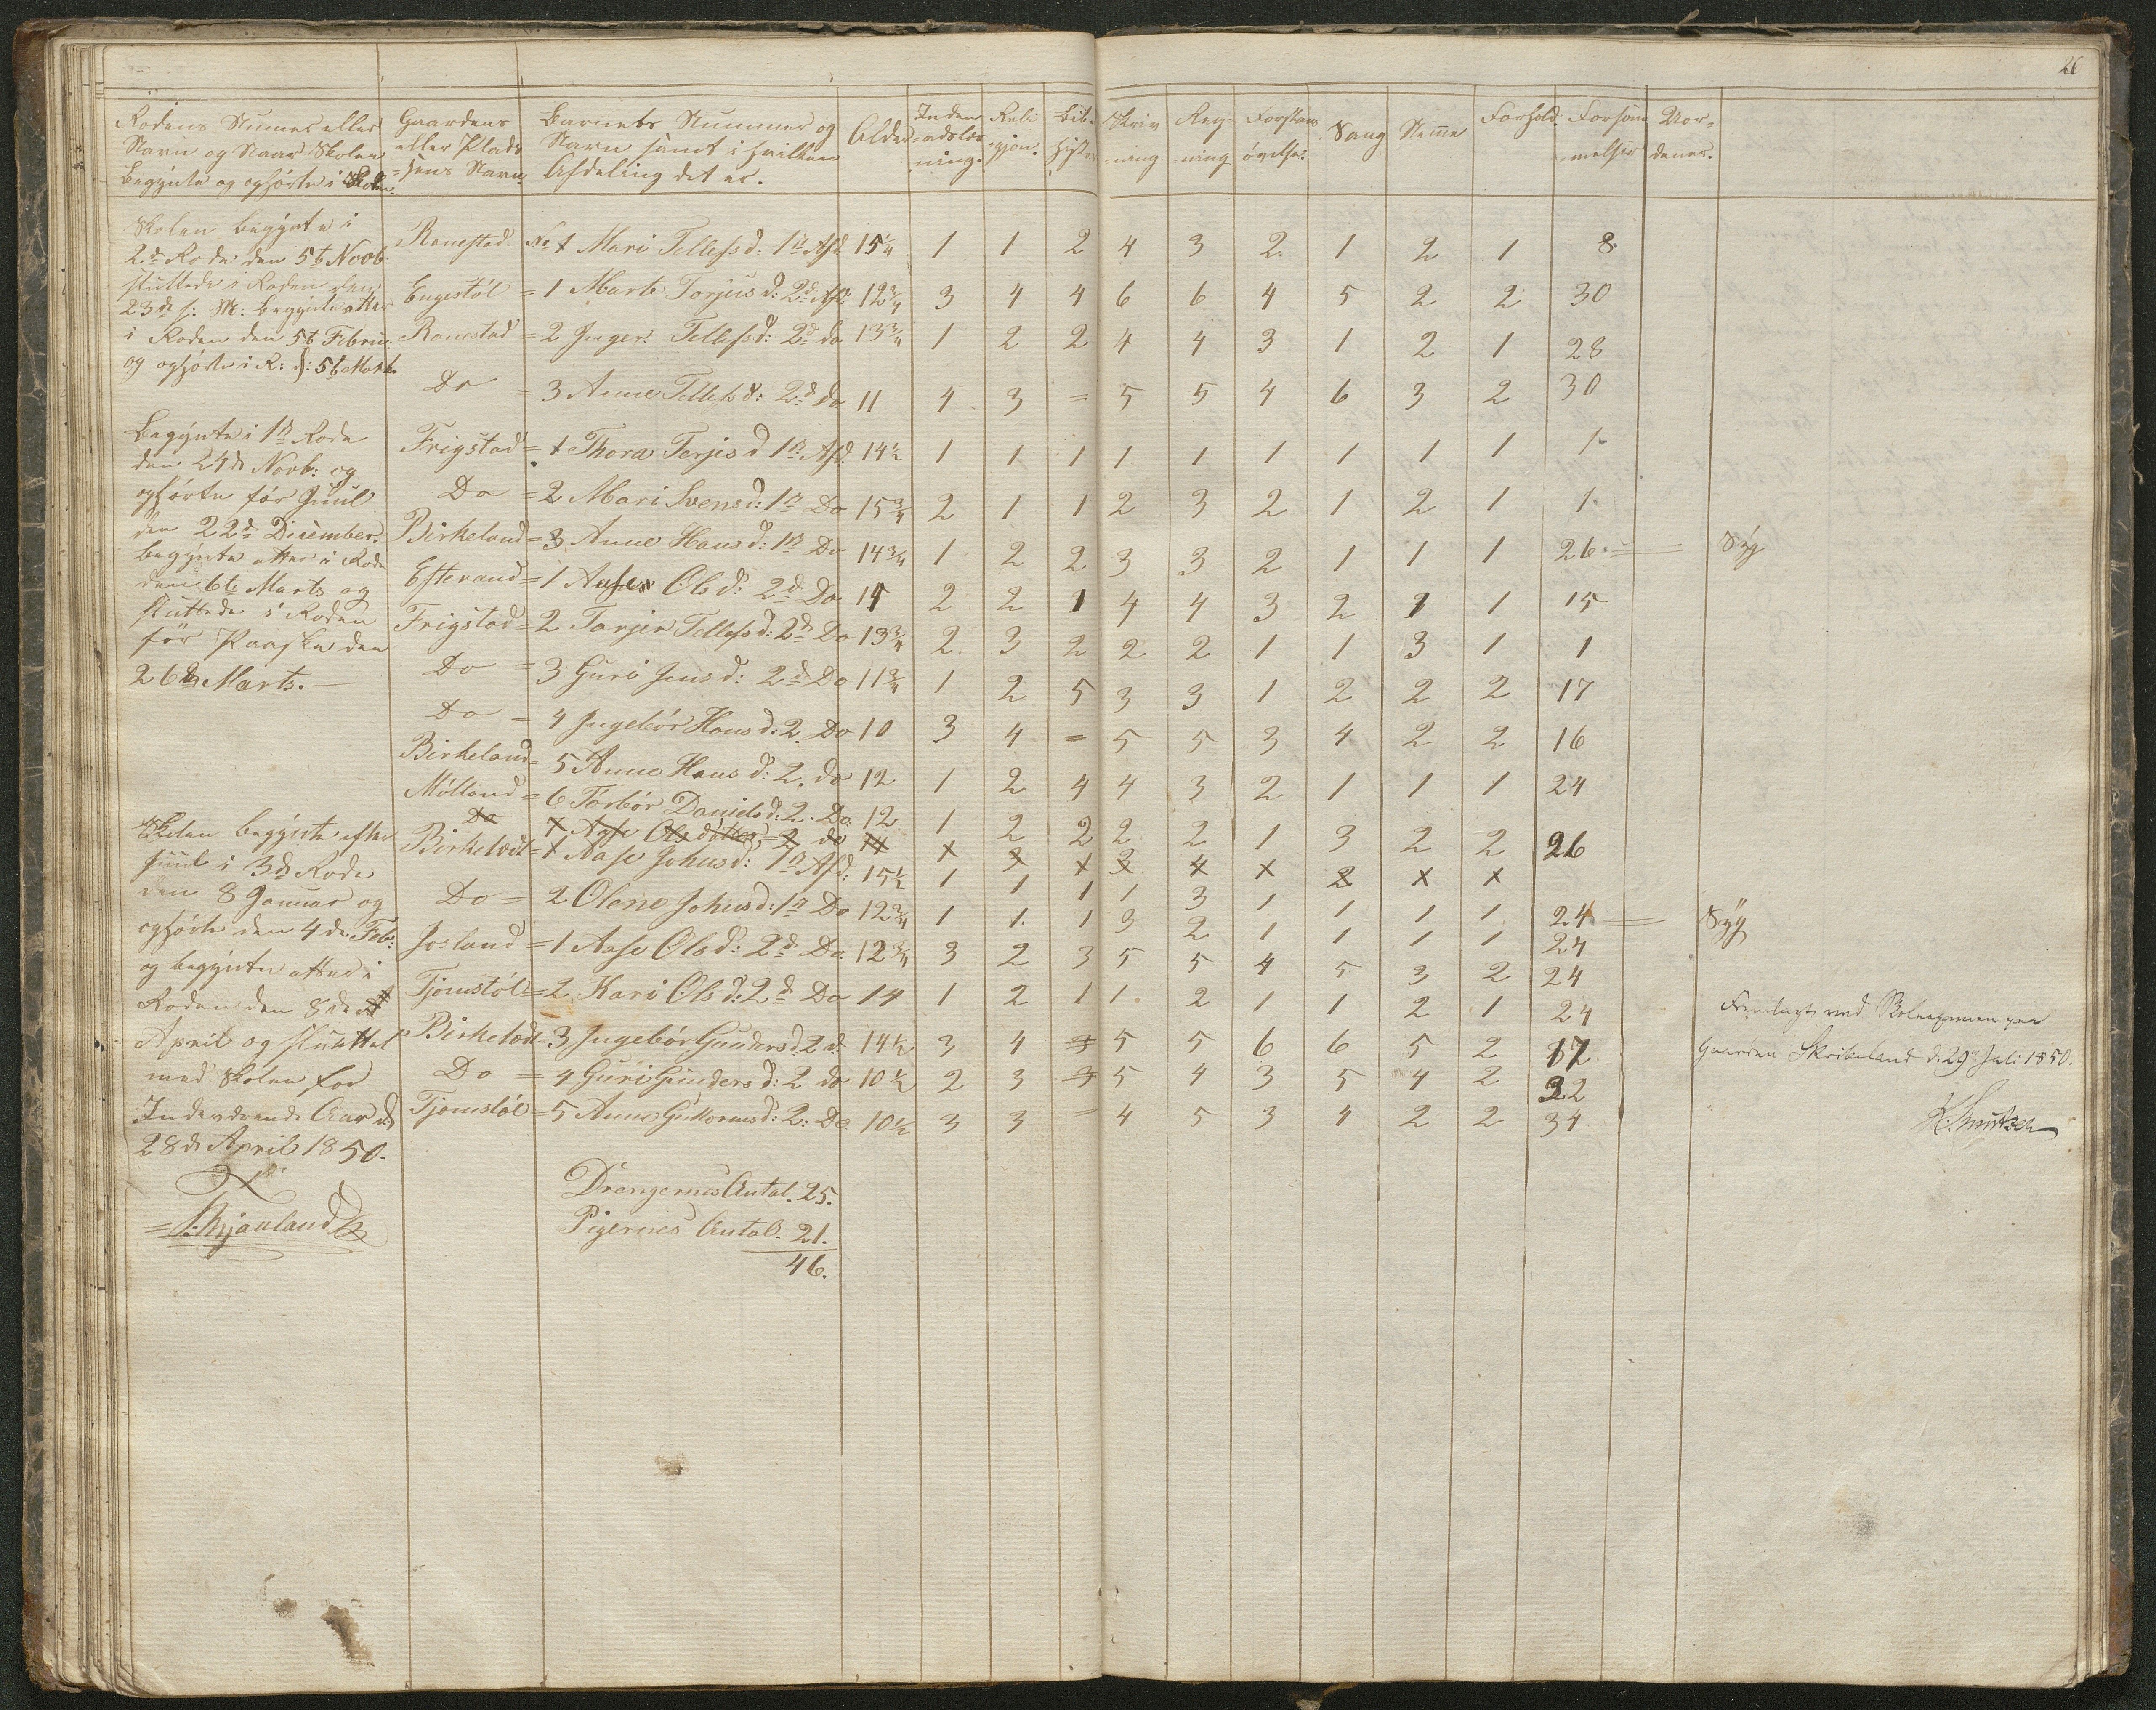 26
Rodens Numer eller Gaardens Barnets Nummer og Alder Inden Reli Bib. Skriv Reg- Forstands Sang Stemme Forhold. Forsøm Vor-
Navn og Naar Skolen eller Plads Navn samt i hvilken =adslæs gjon. Histor ning. ning øvelse. melser dener.
begynte og ophørte i Roden. =sens Navn. Afdeling det er. ning.
Skolen begynte i
2d Rode den 5t Novb:
sluttede i Roden den
23de s: M: begynte atter
i Roden den 5t Februar
og ophørte i R: d: 5t Marts
Ronestad. No 1 Mari Tellefsd: 1st Afd 15 1/4 1 1 2 4 3 2. 1 2 1 8.
Engestøl = 1 Marte Torjus d: 2d Afd: 12 3/4 3 4 4 6 6 4 5 2 2 30
Ronestad = 2 Inger Tellefsd: 2d do 13 3/4 1 2 2 4 4 3 1 2 1 28
Do = 3 Anne Tellefsd: 2d do 11 4 3 = 5 5 4 6 3 2 30
Begynte i 1st Rode
den 24de Novb: og
ophørte før Juul
den 22de December.
begynte atter i Rode
den 6te Marts og
sluttede i Roden
før Paaske den
26de Marts. —
Frigstad = 1 Thora Terjesd 1st Afd. 14 1/2 1 1 1 1 1 1 1 1 1 1.
Do = 2 Mari Svensd: 1st Do 15 3/4 2 1 1 2 3 2 1 2 1 1.
Birkeland = 3 Anne Hansd: 1st Do 14 3/4 1 2 2 3 3 2 1 1 1 26. = Syg
Efterand = 1 Aase Olsd: 2d Do 15 2 2 1 4 4 3 2 1 1 15
Frigstad = 2 Torjer Tellefsd: 2d Do 13 3/4 2 3 2 2 2 1 1 3 1 1
Do = 3 Guri Jens d: 2d Do 11 3/4 1 2 5 3 3 1 2 2 2 17
Do = 4 Ingebør Hans d: 2. Do 10 3 4 = 5 5 3 4 2 2 16
Birkeland = 5 Anne Hans d: 2. do 12 1 2 4 4 3 2 1 1 1 24
Mølland = 6 Torbør Daniels d: 2. Do 12 1 2 2 2 2 1 3 2 2 26
Do 7 Aase Olsdatter, 2 do 11
Skolen begynte efter
Juul i 3de Rode
den 8 Januar og
ophørte den 4de Feb:
og begynte atter i
Roden den 8de
April og sluttet
med Skolen for
Indeværende Aar d
28de April 1850.
Birkeland = 1 Aase Johnsd: 1st Afd: 15 1/2 1 1 1 1 3 1 1 1 1 24 = Syg
Do = 2 Olene Johnsd: 1st Do 12 3/4 1 1. 1 3 2 1 1 1 1 24
Josland = 1 Aase Olsd: 2d Do 12 3/4 3 2 3 5 5 4 5 3 2 24
Tjomstøl = 2 Kari Ols d: 2d Do 14 1 2 1 1. 2 1 1 2 1 24
Birkeland = 3 Ingebør Gunders d. 2 d. 14 1/2 3 4 3 5 5 6 6 5 2 17
Do = 4 Guri Gunders d: 2 do 10 1/2 2 3 3 5 4 3 5 4 2 32
Tjomstøl = 5 Anne Guttormsd: 2: Do 10 1/2 3 3 = 4 5 3 4 2 2 34
Fremlagt ved Skoleexamen paa
Gaarden Skribeland d. 29 Juli 1850.
K. Knutzen
Drengernes Antal. 25.
Pigernes Antal. 21.
46.